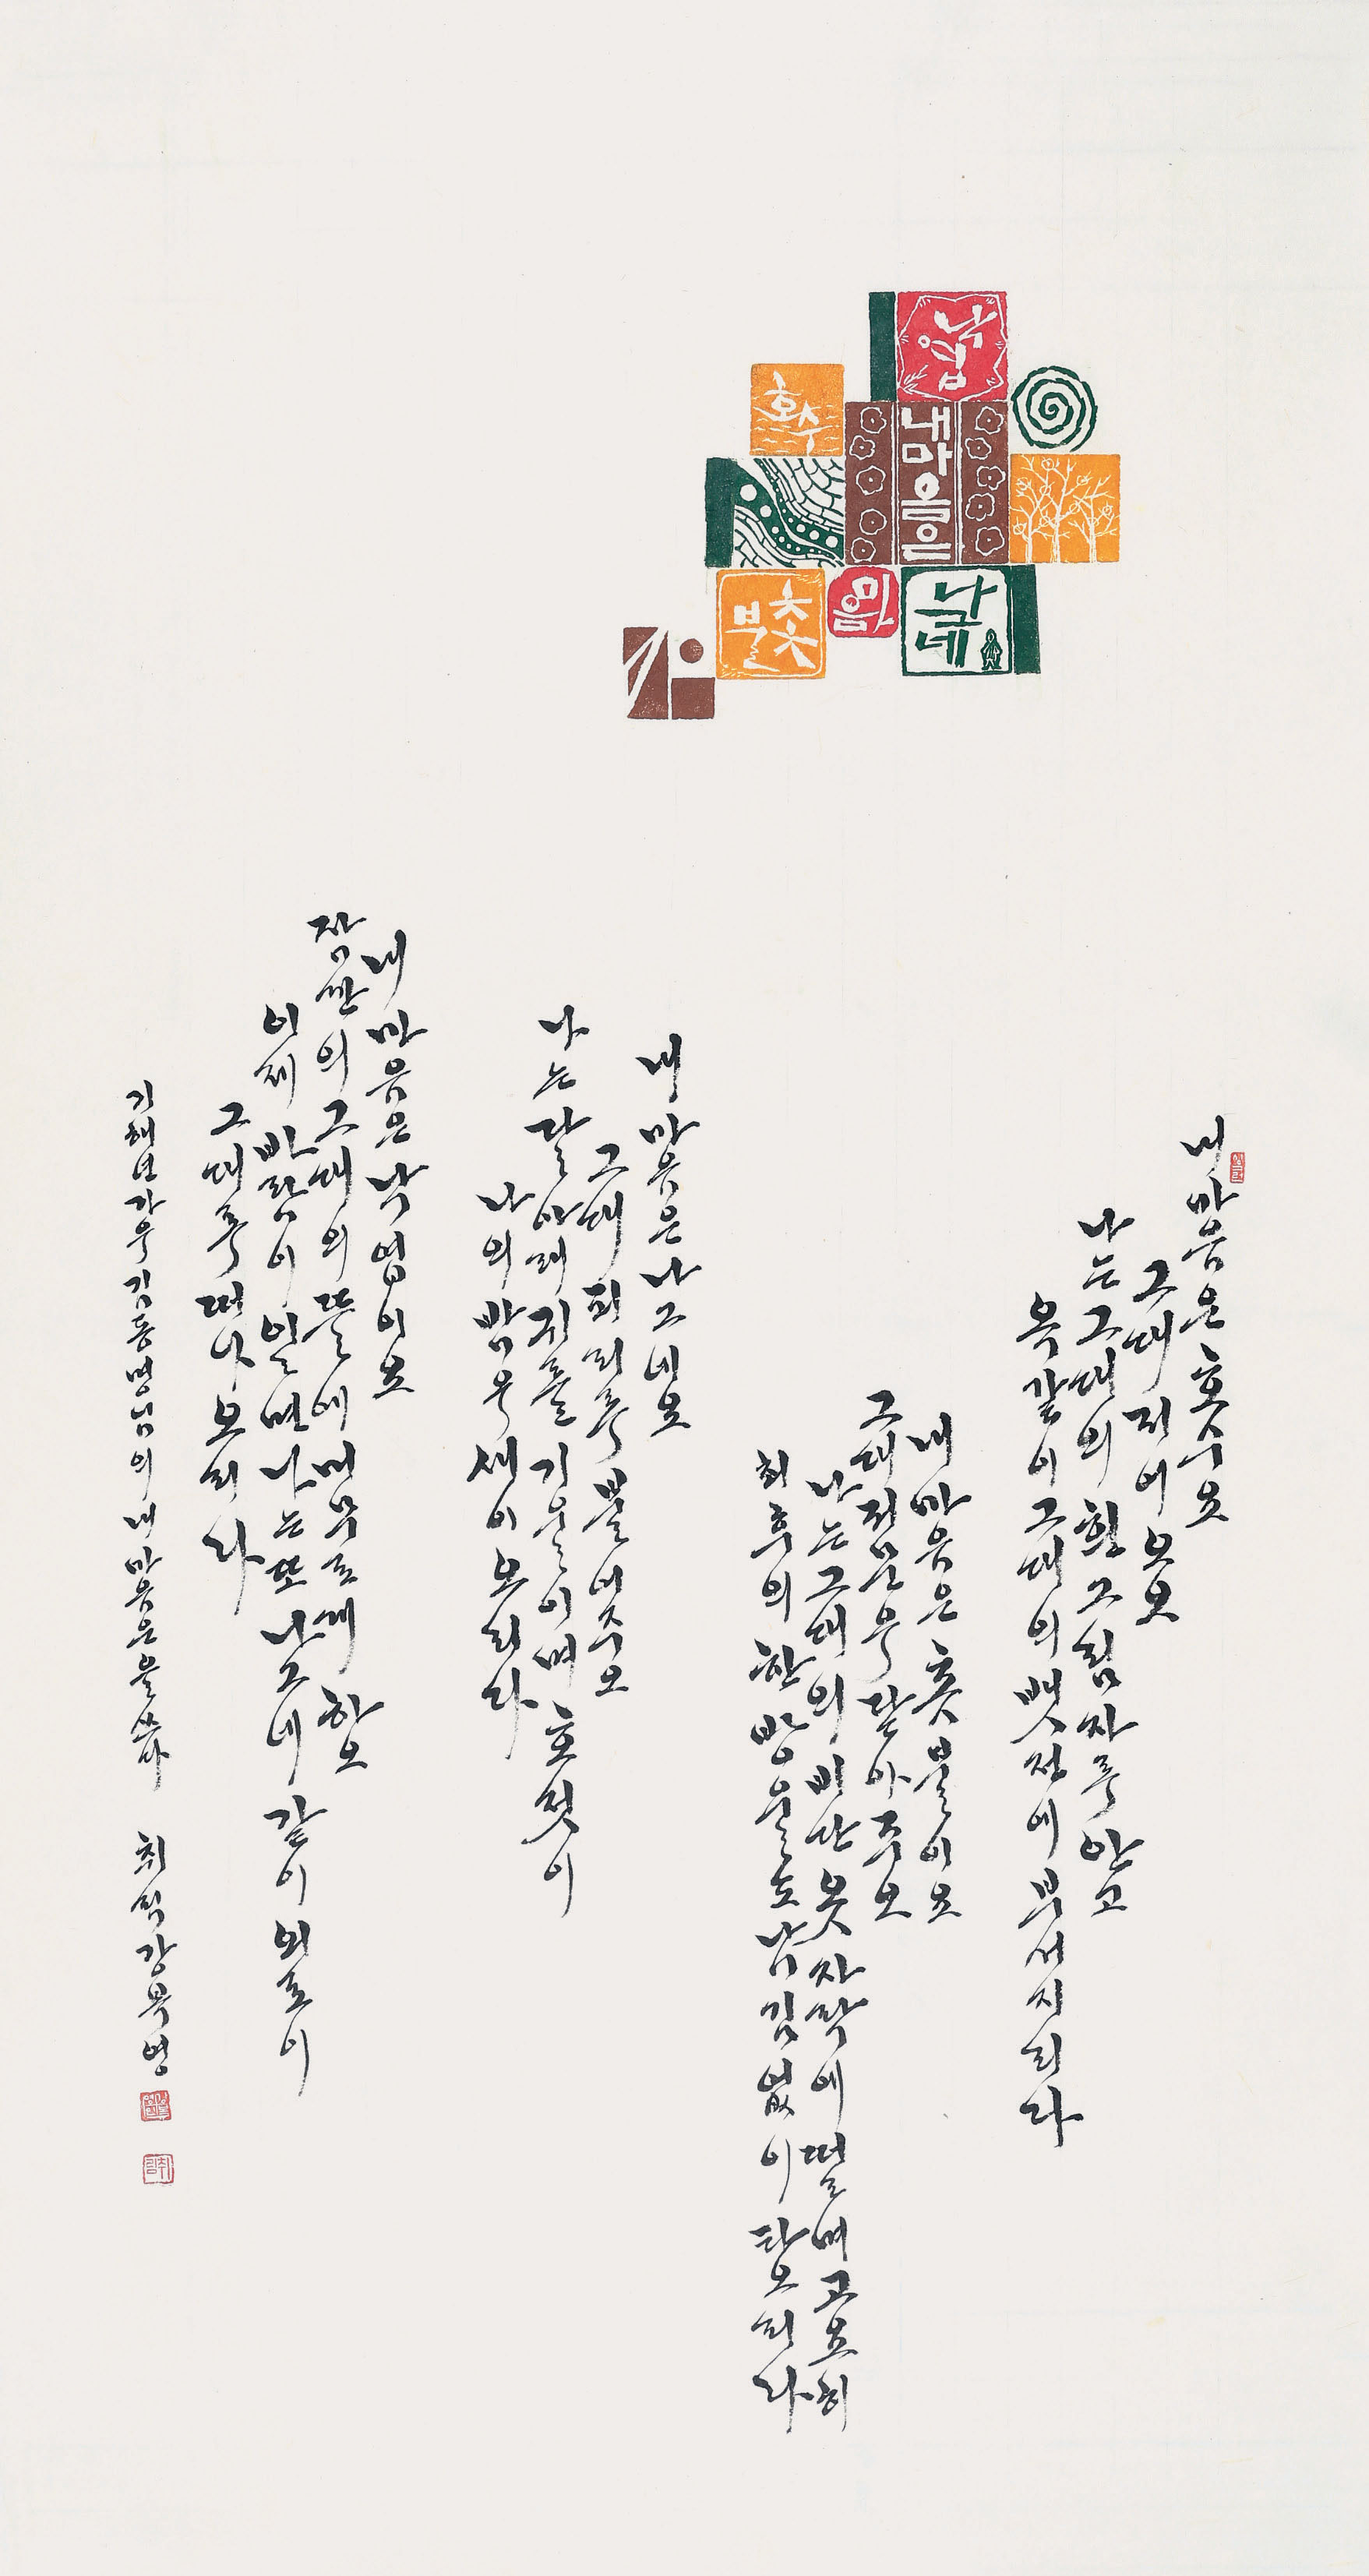 낙엽
호수
내마음은
촛불
마음
나그네
내 마음은 호수요
그대 저어 오오
나는 그대의 흰 그림자를 안고
옥같이 그대의 뱃전에 부서지리라
내 마음은 촛불이요
그대 저 문을 닫아주오
나는 그대의 비단 옷자락에 떨며 고요히
최후의 한 방울도 남김없이 타오리라
내 마음은 나그네요
그대 피리를 불어주오
나는 달 아래 귀를 기울이며 호젓이
나의 밤을 새이오리라
내 마음은 낙엽이요
잠깐의 그대의 뜰에 머무르게 하오
이제 바람이 일면 나는 또 나그네 같이 외로이
그대를 떠나오리라
기해년 가을 김동명님의 내 마음은을 쓰다 취림 강옥영